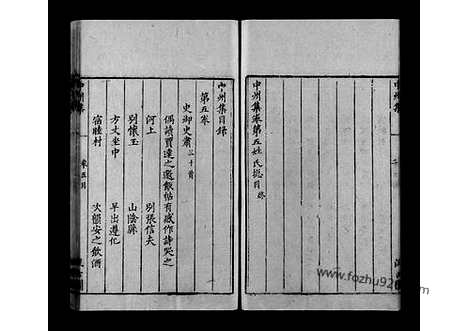 中州集卷第五姓氏總目終
中州集目録
第五卷
史御史肅三十首
偶讀賈達之邀飲帖有感作詩哭之
河上
别張信夫
别懷玉
山陰縣
方丈坐中
早出遵化
宿睦村
次韻安之飲酒
中州集
卷五目
www.fozhu920.com